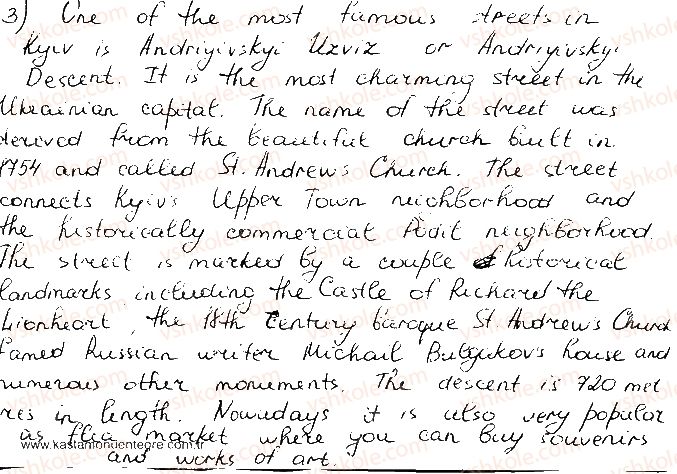 3) One of the most famous streets in
Kyiv is Andriyivskyi Uzviz or Andriyivskyi
Descent. It is the most charming street in the
Ukrainian capital. The name of the street was
derived from the beautiful church built in
1754 and called St. Andrew's Church. The street
connects Kyiv's Upper Town neighborhood and
the historically commercial Podil neighborhood.
The street is marked by a couple of historical
landmarks including the Castle of Richard the
Lionheart, the 18th century baroque St. Andrew's Church
famed Russian writer Michail Bulgukov's house and
numerous other monuments. The descent is 720 met
res in length. Nowudays it is also very popular
as flea market where you can buy souvenirs
www.kastamonuentegre.com.tr
and works of art.